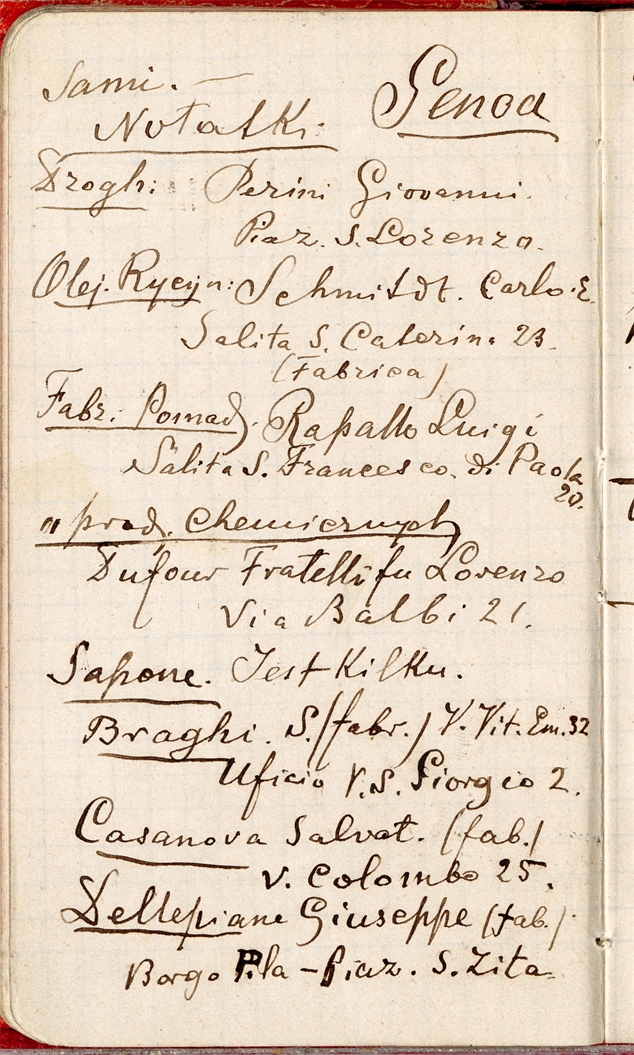 Sami. —
Notatki. Genoa
Droghi: Perini Giovanni.
Piaz. S. Lorenzo.
Olej. Rycyn: Schmidt. Carlo. E.
Salita S. Caterin. 23.
(Fabrica)
Fabr. Pomad. Rapallo Luigi
Salita S. Francesco. di Paola
20.
" prod. chemicznych
Dufour Fratelli fu Lorenzo
Via Balbi 21.
Sapone. Jest Kilku.
Braghi. S. (fabr.) V. Vit. Em. 32
Uficio V. S. Giorgio 2.
Casanova Salvat. (fab.)
v. Colombo 25.
Dellepiane Giuseppe (fab.)
Borgo Pila – Piaz. S. Zita